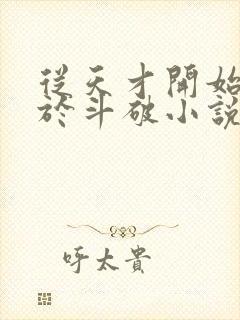 從天才開始
於斗破小說
呼太貴